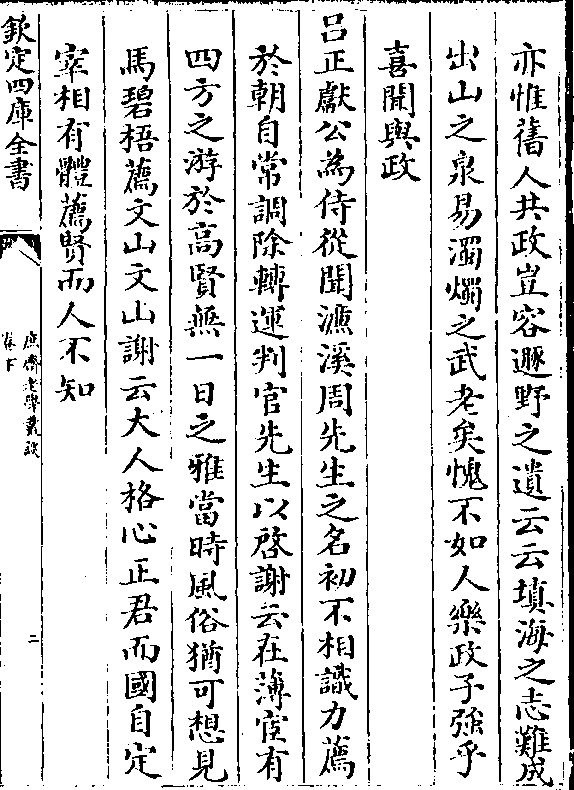 亦惟舊人共政豈容遯野之遺云云填海之志難成
出山之泉易濁燭之武老矣愧不如人樂政子強乎
喜聞與政
呂正獻公為侍從聞濂溪周先生之名初不相識力薦
於朝自常調除轉運判官先生以啓謝云在薄宦有
四方之游於高賢無一日之雅當時風俗猶可想見
馬碧梧薦文山文山謝云大人格心正君而國自定
宰相有體薦賢而人不知
欽定四庫全書
庶齋老學叢談
卷下
二